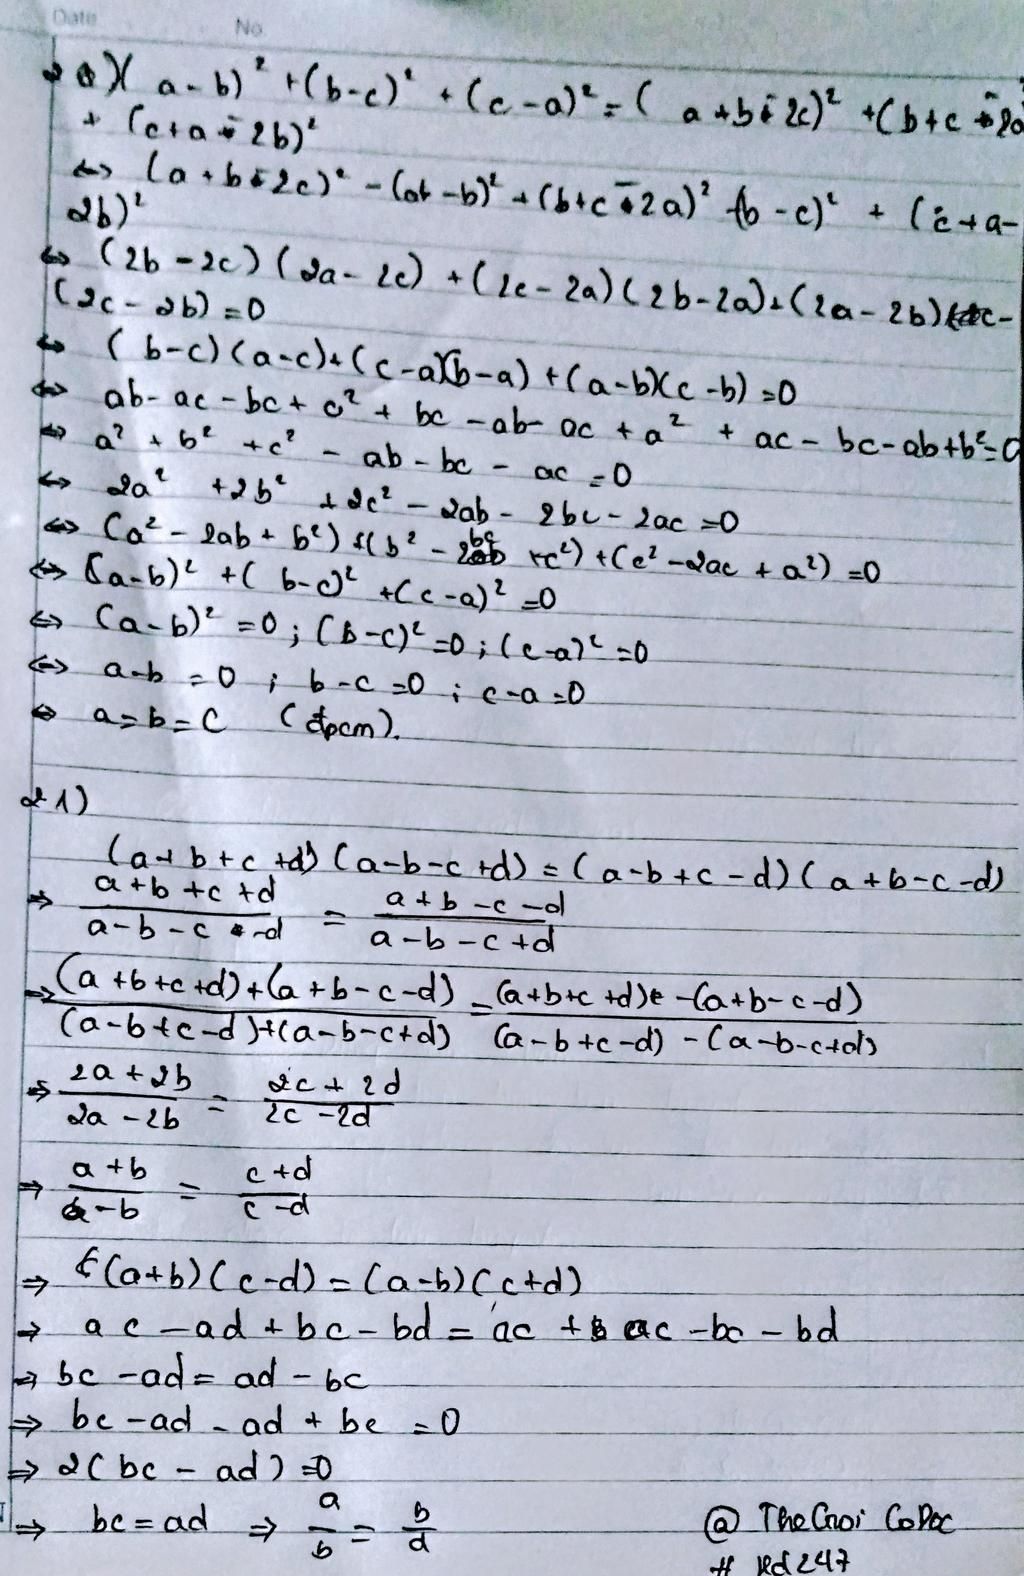 Date No
a) (a-b)² + (b-c)² + (c-a)² = (a+b-2c)² + (b+c-2a
+ (c+a-2b)²
<=> (a+b-2c)² - (a-b)² + (b+c-2a)² - (b-c)² + (c+a-
2b)²
<=> (2b-2c)(2a-2c) + (2c-2a)(2b-2a) + (2a-2b)
(2c-2b) = 0
<=> (b-c)(a-c) + (c-a)(b-a) + (a-b)(c-b) = 0
<=> ab - ac - bc + c² + bc - ab - ac + a² + ac - bc - ab + b² = 0
<=> a² + b² + c² - ab - bc - ac = 0
<=> 2a² + 2b² + 2c² - 2ab - 2bc - 2ac = 0
<=> (a² - 2ab + b²) + (b² - 2bc + c²) + (c² - 2ac + a²) = 0
<=> (a-b)² + (b-c)² + (c-a)² = 0
<=> (a-b)² = 0 ; (b-c)² = 0 ; (c-a)² = 0
<=> a-b = 0 ; b-c = 0 ; c-a = 0
<=> a = b = c (đpcm).
21)
(a+b+c+d)(a-b-c+d) = (a-b+c-d)(a+b-c-d)
=> (a+b+c+d)/(a-b-c-d) = (a+b-c-d)/(a-b-c+d)
=> ((a+b+c+d)+(a+b-c-d))/((a-b+c-d)+(a-b-c+d)) = ((a+b+c+d)-(a+b-c-d))/((a-b+c-d)-(a-b-c+d))
=> (2a+2b)/(2a-2b) = (2c+2d)/(2c-2d)
=> (a+b)/(a-b) = (c+d)/(c-d)
=> (a+b)(c-d) = (a-b)(c+d)
=> ac - ad + bc - bd = ac + ac - bc - bd
=> bc - ad = ad - bc
=> bc - ad - ad + bc = 0
=> 2(bc - ad) = 0
=> bc = ad => a/b = b/d
@ TheGnoi CoDoc
# kd247